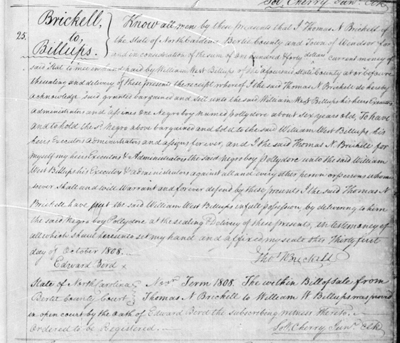 Sol Cherry Junr Clk
Brickell
25.
to
Billups.
Know all men by these Presents that I Thomas N Brickell of
the State of North Carolina Bertie County and Town of Windsor for
and in consideration of the sum of two hundred & forty dollars current money of
said State to me in hand paid by William West Billups of the aforesaid State & County at or before
the sealing and delivery of these presents the receipt whereof I the said Thomas N Brickell do hereby
acknowledge have granted bargained and sold unto the said William West Billups his heirs Executors
administrators and assigns One Negro boy named Pollydore about six years old, To have
and to hold the sd. Negro above bargained and sold to the said William West Billups his
heirs Executors administrators and assigns forever, and I the said Thomas N. Brickell for
myself my heirs Executors & Administrators the said Negro boy Pollydore unto the said William
West Billups his Executors & Administrators against all and every other person or persons whom
soever shall and will warrant and forever defend by these presents. I the said Thomas N
Brickell have put the said William West Billups in full possession, by delivering to him
the said Negro boy Pollydore, at the sealing & delivery of these presents, in testimony of
all which I have hereunto set my hand and affixed my seal this Thirty first
day of October 1808.
Thos. N Brickell
Edward Bird
State of North Carolina
Novr Term 1808. The within Bill of Sale from
Bertie County Court
Thomas N Brickell to William W Billups was proved
in open court by the oath of Edward Bird the subscribing witness thereto.
Ordered to be Registered.
Sol Cherry Junr Clk